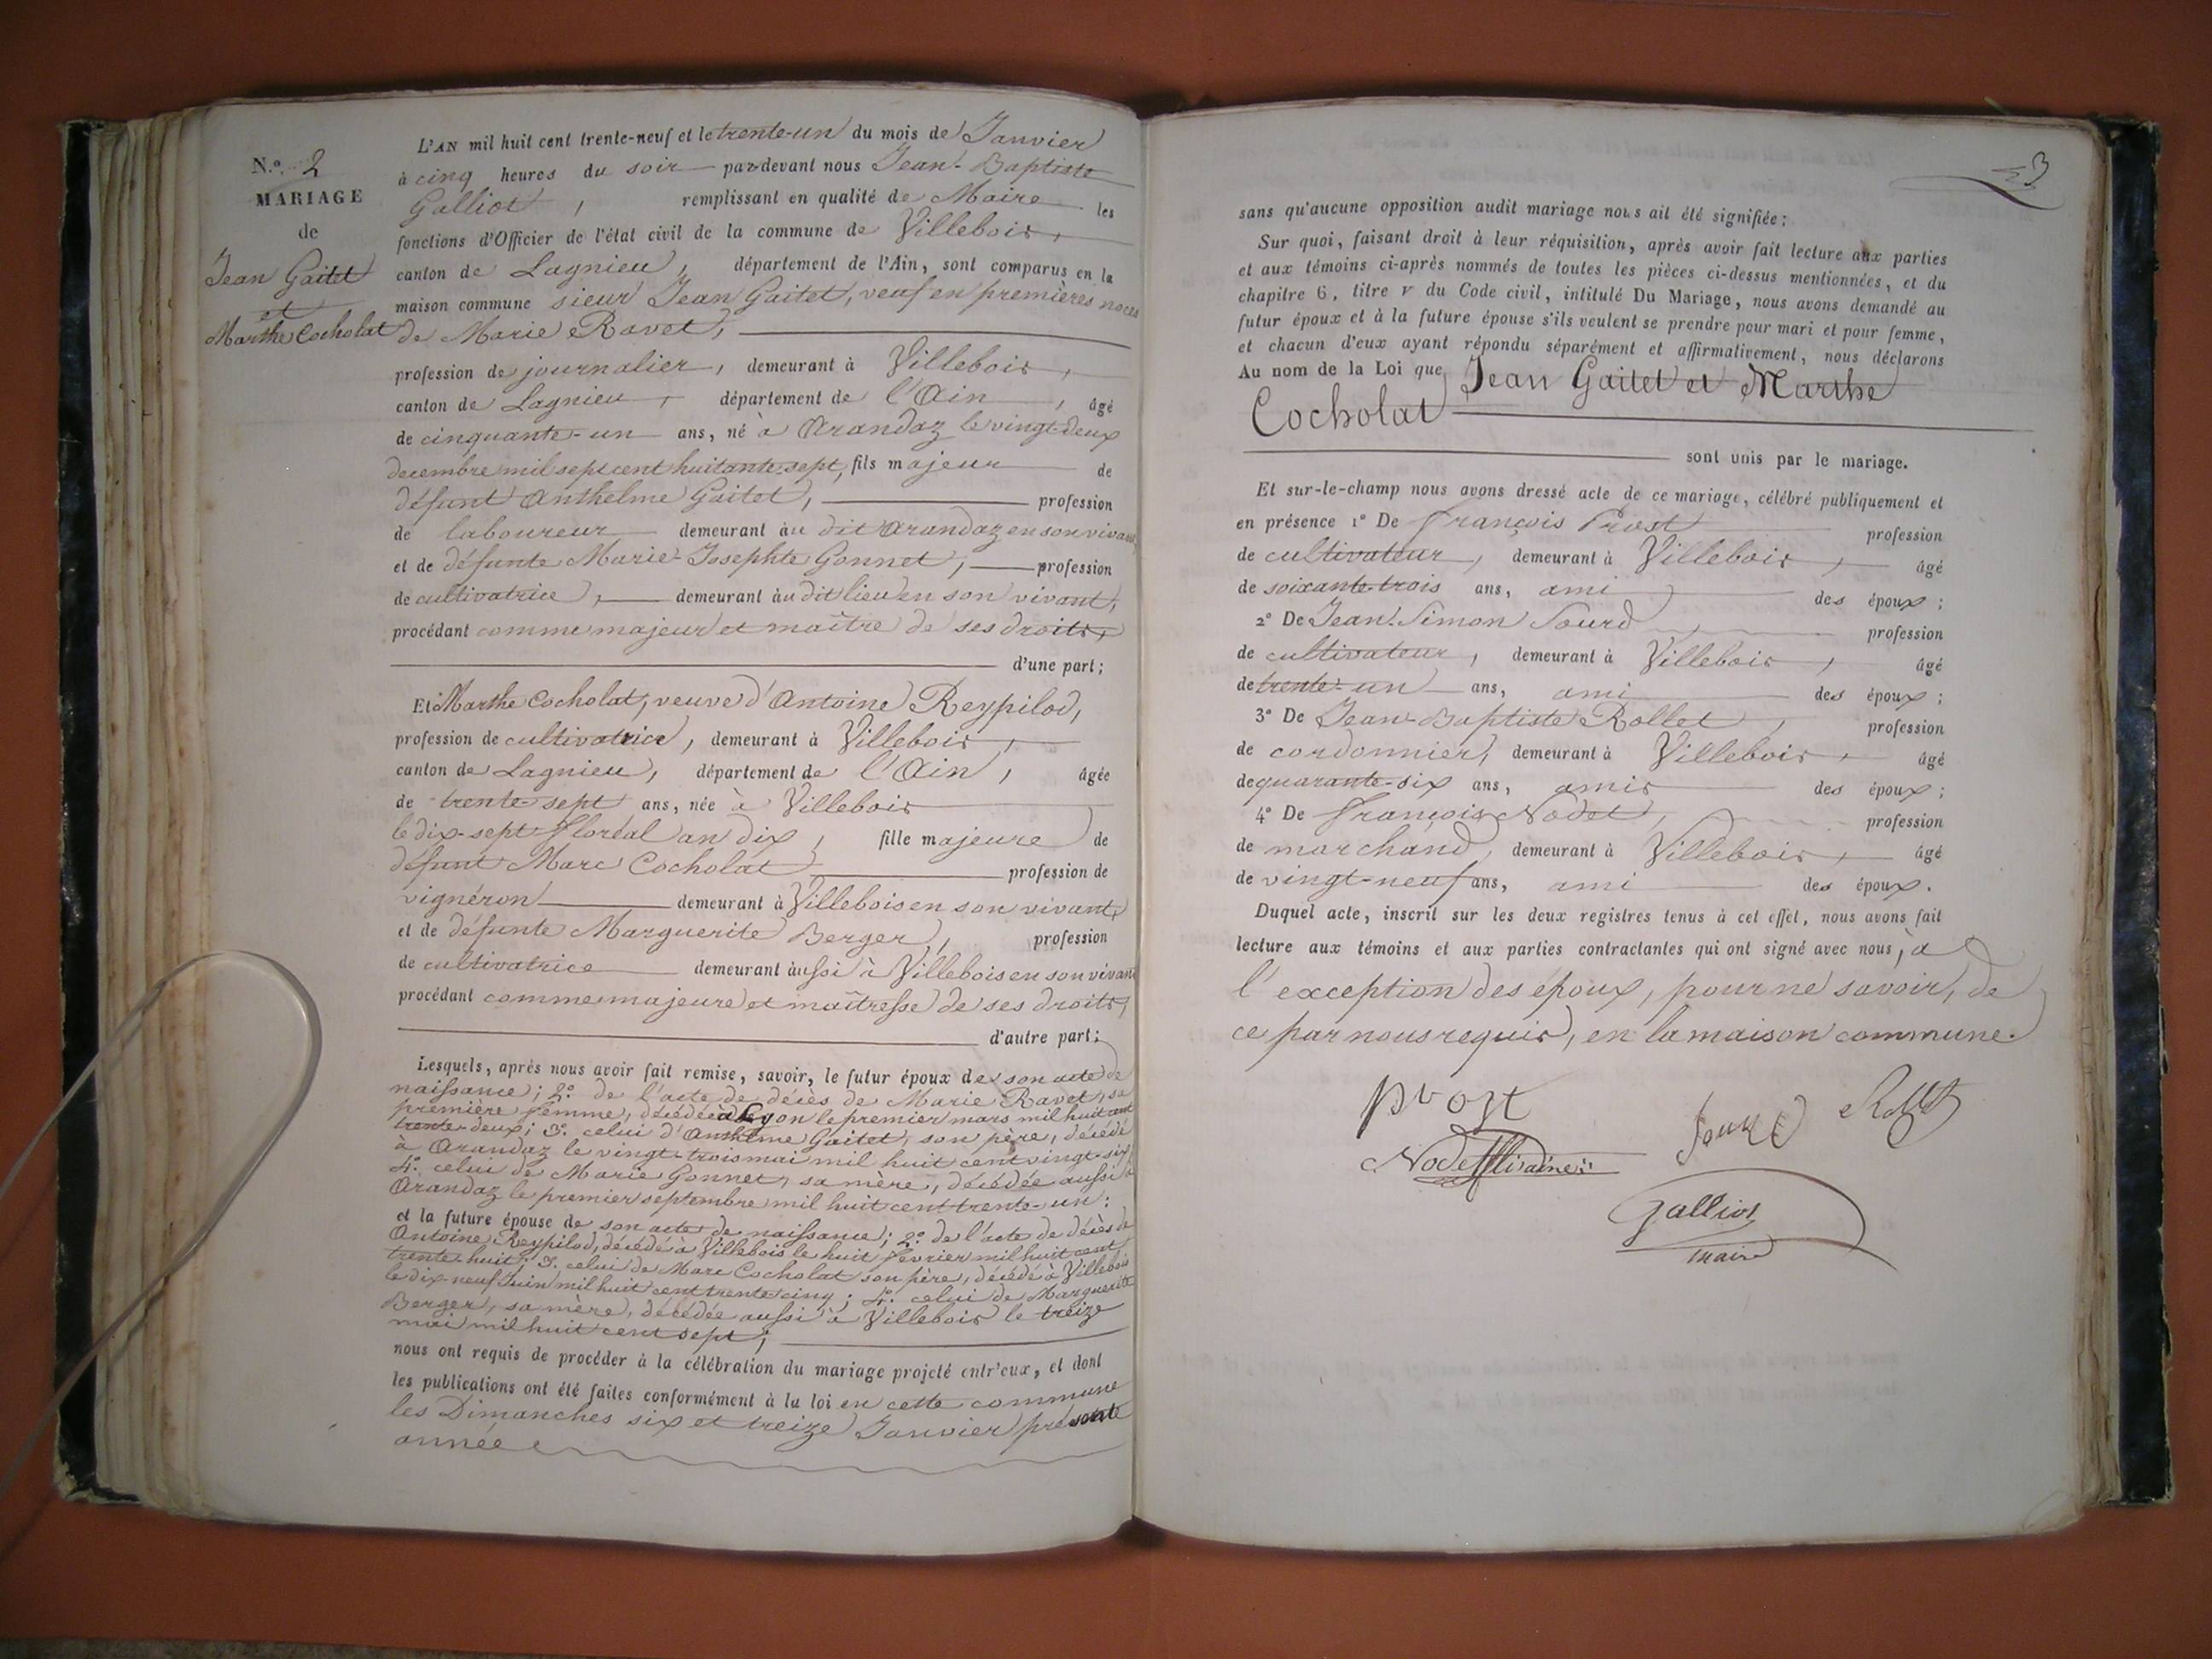 N.o 2
MARIAGE
de
Jean Gaitet
et
Marthe Cocholat
L'AN mil huit cent trente-neuf et le trente-un du mois de Janvier
à cinq heures du soir par-devant nous Jean-Baptiste
Galliot, remplissant en qualité de Maire les
fonctions d'Officier de l'état civil de la commune de Villebois,
canton de Lagnieu, département de l'Ain, sont comparus en la
maison commune sieur Jean Gaitet, veuf en premières noces
de Marie Ravet,
profession de journalier, demeurant à Villebois,
canton de Lagnieu, département de l'Ain, âgé
de cinquante-un ans, né à Arandaz le vingt-deux
decembre mil sept cent huitante-sept, fils majeur de
défunt Anthelme Gaitet, profession
de laboureur demeurant au dit Arandaz en son vivant,
et de défunte Marie-Josephte Gonnet, profession
de cultivatrice, demeurant au dit lieu en son vivant,
procédant comme majeur et maître de ses droits,
d'une part;
Et Marthe Cocholat, veuve d'Antoine Reypilod,
profession de cultivatrice, demeurant à Villebois,
canton de Lagnieu, département de l'Ain, âgée
de trente-sept ans, née à Villebois
le dix-sept floréal an dix, fille majeure de
défunt Marc Cocholat profession de
vignéron demeurant à Villebois en son vivant,
et de défunte Marguerite Berger, profession
de cultivatrice demeurant aussi à Villebois en son vivant
procédant comme majeure et maîtresse de ses droits,
d'autre part;
Lesquels, après nous avoir fait remise, savoir, le futur époux de son acte de
naissance; 2.o de l'acte de décès de Marie Ravet, sa
première femme, décédée à Lyon le premier mars mil huit cent
trente-deux; 3.o celui d'Anthelme Gaitet, son père, décédé
à Arandaz le vingt-trois mai mil huit cent vingt-six;
4.o celui de Marie Gonnet, sa mère, décédée aussi à
Arandaz le premier septembre mil huit cent trente-un:
et la future épouse de son acte de naissance; 2.o de l'acte de décès de
Antoine Reypilod, décédé à Villebois le huit février mil huit cent
trente-huit; 3. celui de Marc Cocholat son père, décédé à Villebois
le dix-neuf Juin mil huit cent trente-cinq; 4.o celui de Marguerite
Berger, sa mère, décédée aussi à Villebois le treize
mai mil huit cent sept;
nous ont requis de procéder à la célébration du mariage projeté entr'eux, et dont
les publications ont été faites conformément à la loi en cette commune
les Dimanches six et treize Janvier présente
année
3
sans qu'aucune opposition audit mariage nous ait été signifiée;
Sur quoi, faisant droit à leur réquisition, après avoir fait lecture aux parties
et aux témoins ci-après nommés de toutes les pièces ci-dessus mentionnées, et du
chapitre 6, titre v du Code civil, intitulé Du Mariage, nous avons demandé au
futur époux et à la future épouse s'ils veulent se prendre pour mari et pour femme,
et chacun d'eux ayant répondu séparément et affirmativement, nous déclarons
Au nom de la Loi que Jean Gaitet et Marthe
Cocholat
sont unis par le mariage.
Et sur-le-champ nous avons dressé acte de ce mariage, célébré publiquement et
en présence 1o De François Prost profession
de cultivateur, demeurant à Villebois, âgé
de soixante-trois ans, ami des époux;
2o De Jean-Simon Sourd, profession
de cultivateur, demeurant à Villebois, âgé
de trente-un ans, ami des époux;
3o De Jean-Baptiste Rollet, profession
de cordonnier, demeurant à Villebois, âgé
de quarante-six ans, amis des époux;
4o De François Nodet, profession
de marchand, demeurant à Villebois, âgé
de vingt-neuf ans, ami des époux.
Duquel acte, inscrit sur les deux registres tenus à cet effet, nous avons fait
lecture aux témoins et aux parties contractantes qui ont signé avec nous, à
l'exception des époux, pour ne savoir, de
ce par nous requis, en la maison commune.
Prost
Sourd
Rollet
Galliot
maire